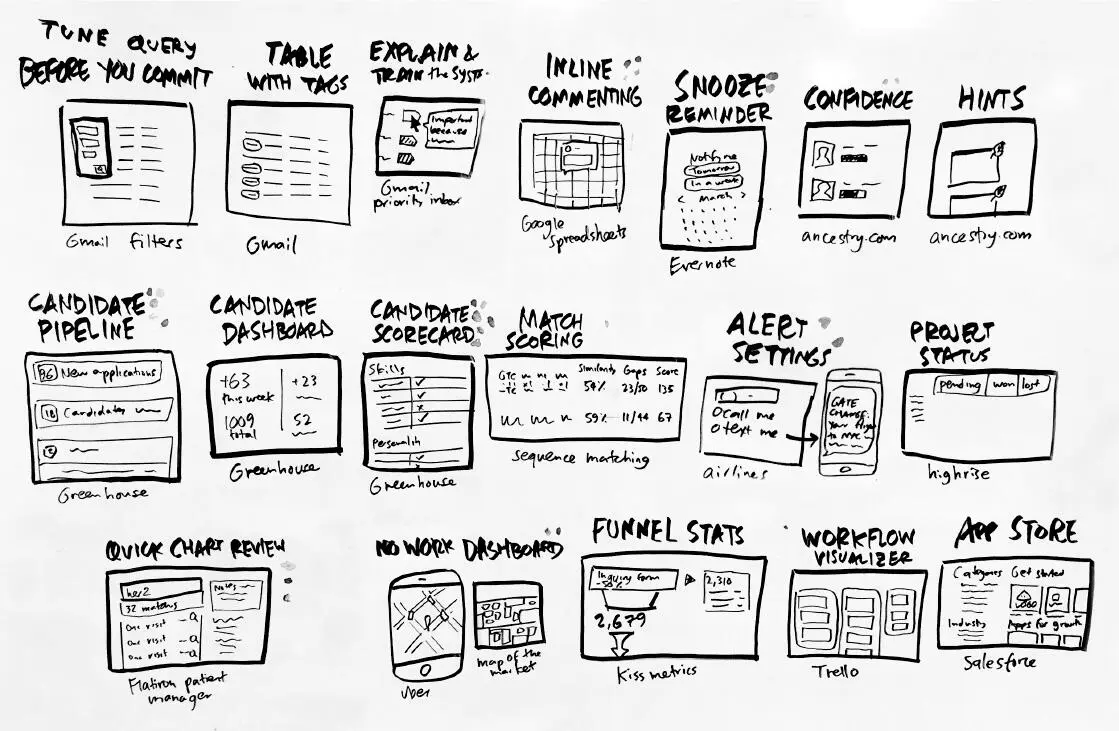 TUNE QUERY
BEFORE YOU COMMIT
Gmail filters
TABLE
WITH TAGS
Gmail
EXPLAIN &
TRAIN the SYSTE.
Important
because
Gmail
priority inbox
INLINE
COMMENTING
Google
Spreadsheets
SNOOZE
REMINDER
Notify me
Tomorrow
In a week
< March >
Evernote
CONFIDENCE
ancestry.com
HINTS
ancestry.com
CANDIDATE
PIPELINE
36 New applications
18 Candidates
Greenhouse
CANDIDATE
DASHBOARD
+63
this week
+23
1009
total
52
Greenhouse
CANDIDATE
SCORECARD
Skills
Personality
Greenhouse
MATCH
SCORING
Similarity Gaps Score
54% 23/50 135
59% 11/44 67
sequence matching
ALERT
SETTINGS
call me
text me
GATE
CHANGE:
Your flight
to NYC
airlines
PROJECT
STATUS
pending won lost
highrise
QUICK CHART REVIEW
her2
32 matches
One visit
One visit
One visit
Notes
Flatiron patient
manager
NO WORK DASHBOARD
Uber
map of the
market
FUNNEL STATS
Inquiry form
2,310
2,679
Kiss metrics
WORKFLOW
VISUALIZER
Trello
APP STORE
Categories Get started
Industry Apps for growth
Salesforce